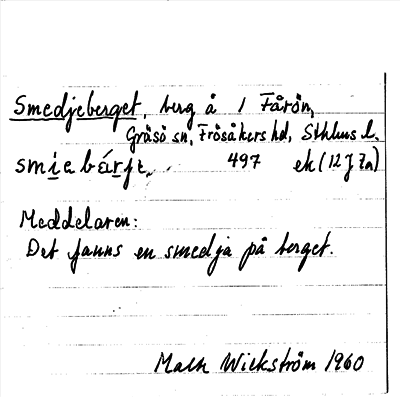 Smedjeberget, berg å 1 Fårön,
Gräsö sn, Frösåkers hd, Sthlms l.
smiebárjt, 497 ek (12J7a)
Meddelaren:
Det fanns en smedja på berget.
Maln Wickström 1960